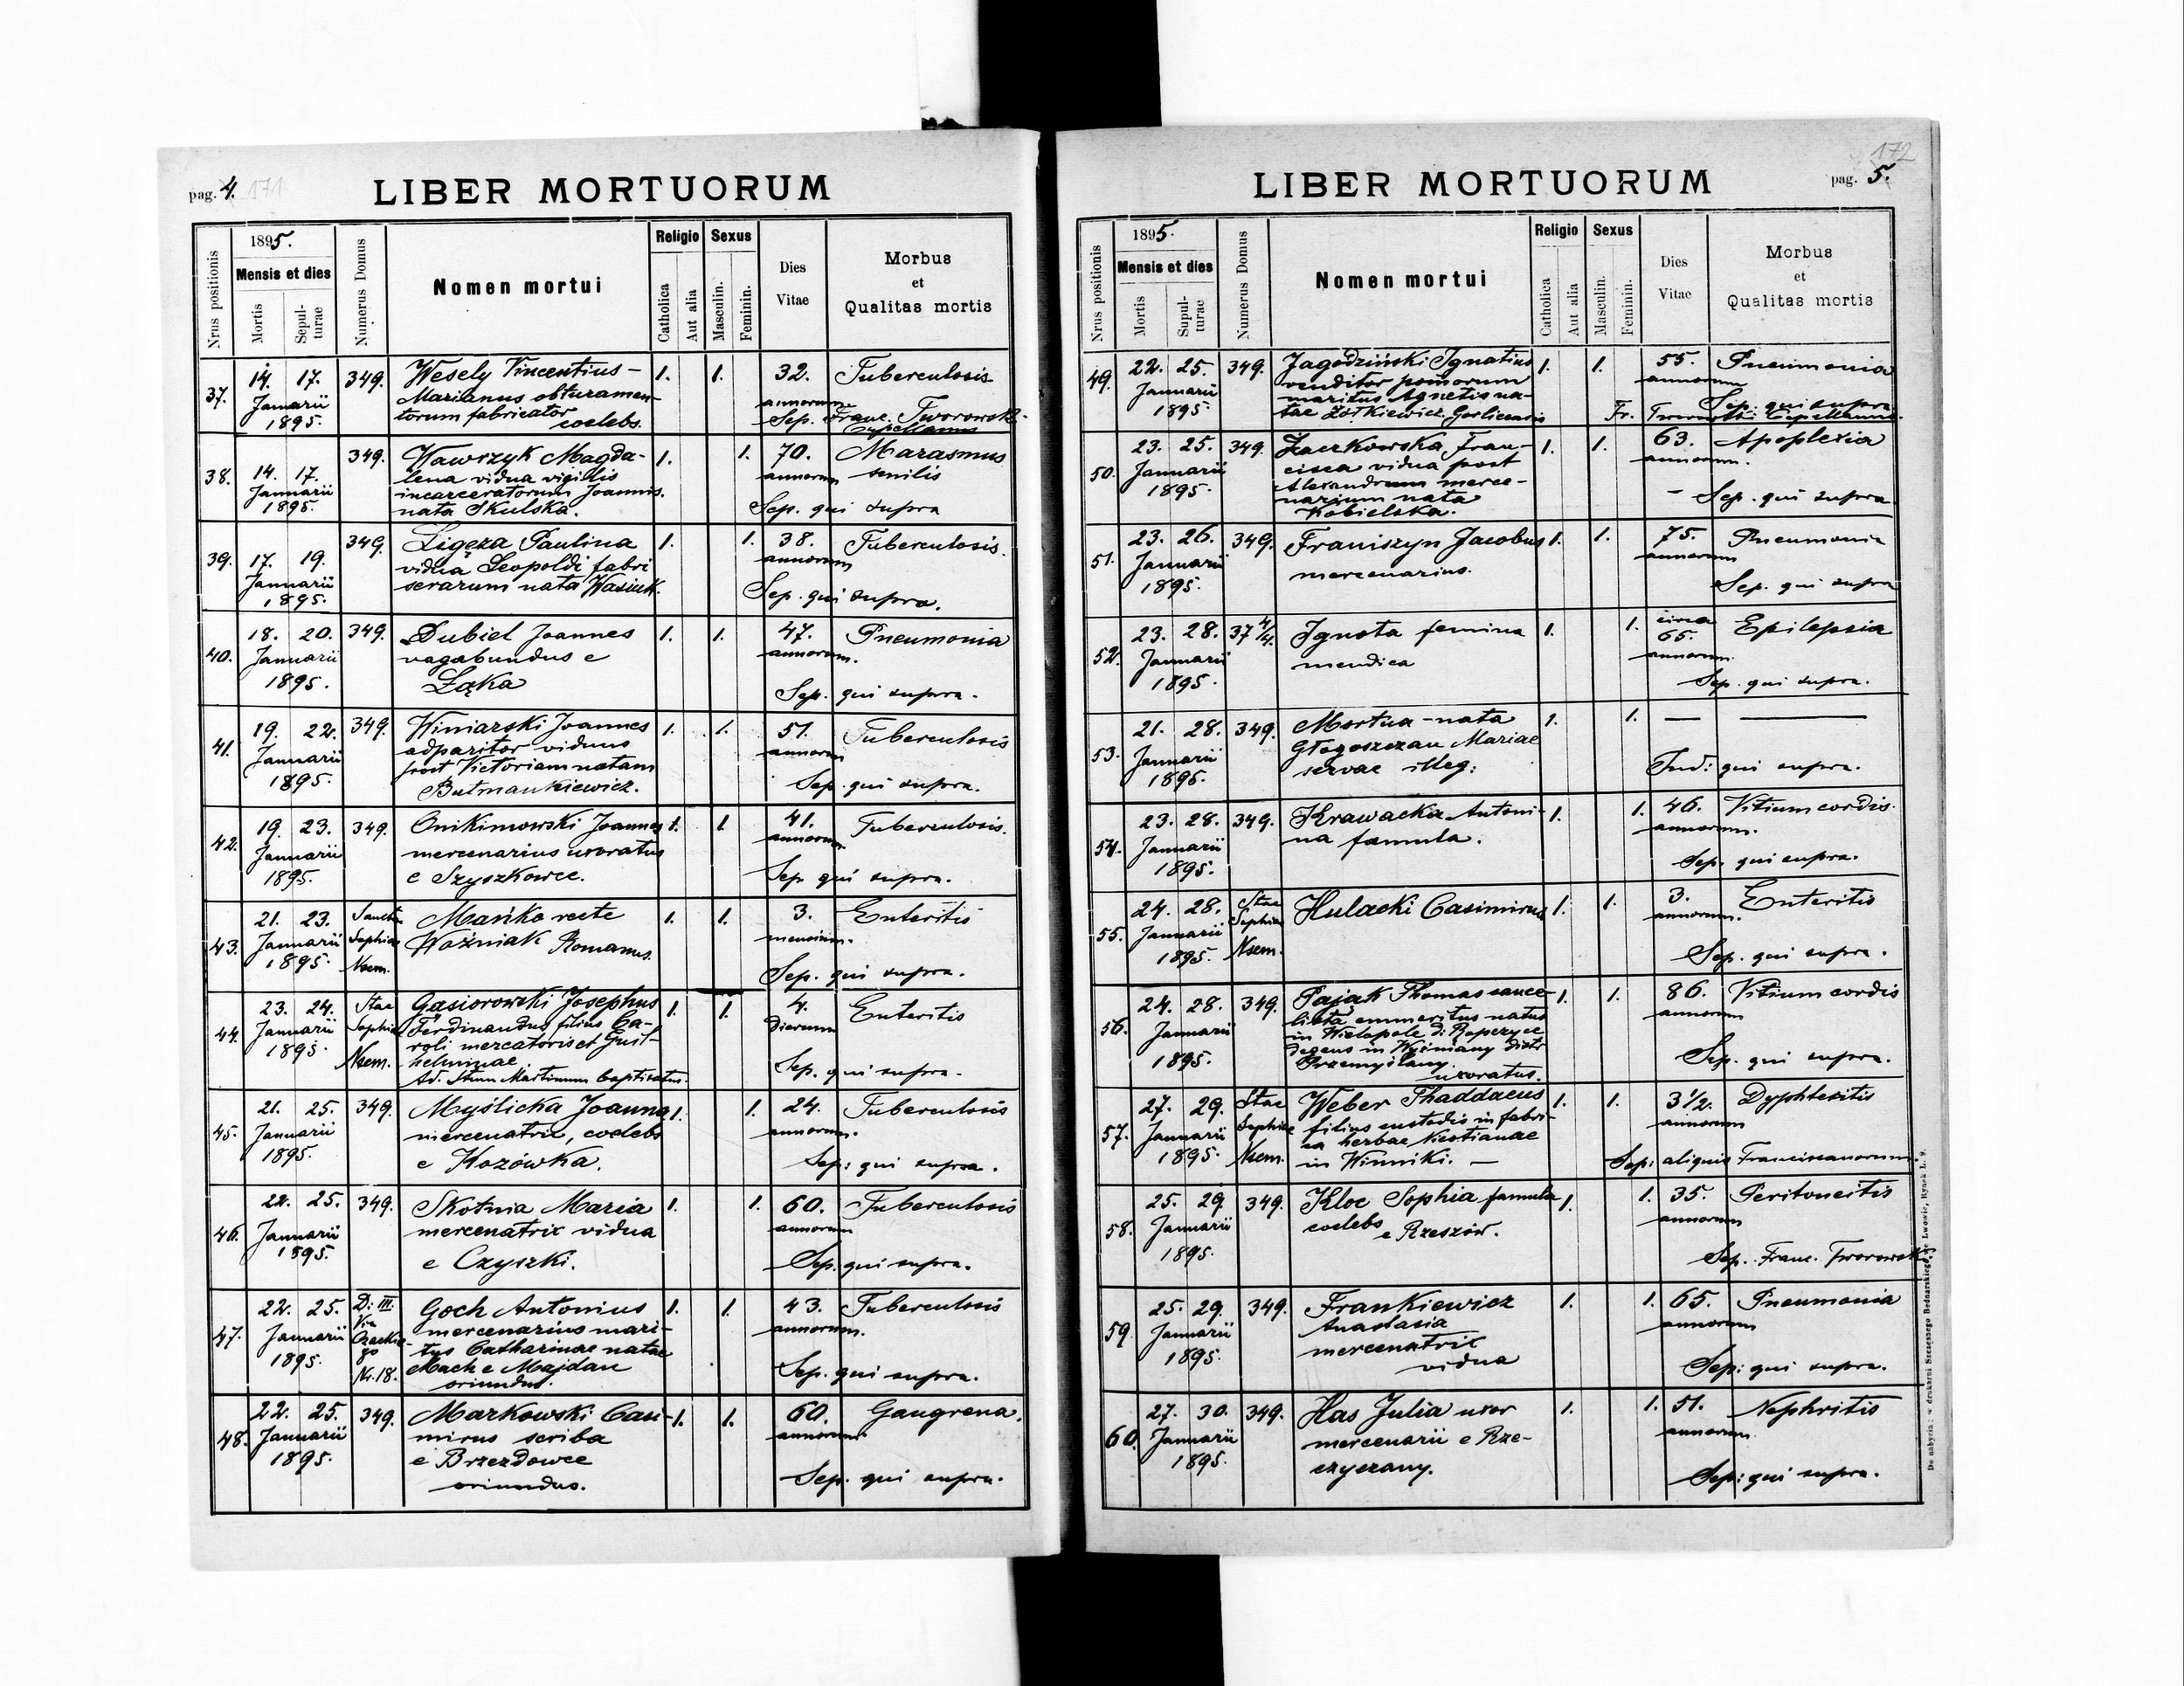 pag. 4. 171
LIBER MORTUORUM
Nrus positionis
1895.
Mensis et dies
Mortis
Sepul-
turae
Numerus Domus
Nomen mortui
Religio
Catholica
Aut alia
Sexus
Masculin.
Feminin.
Dies
Vitae
Morbus
et
Qualitas mortis
37. 14. 17. 349. Wesely Vincentius – 1. 1. 32. Tuberculosis
Januarii Marianus obturamen- annorum
1895. torum fabricator Sep. Franc. Tworowski
coelebs. Capellanus
38. 14. 17. 349. Wawrzyk Magda- 1. 1. 70. Marasmus
Januarii lena vidua vigilis annorum senilis
1895. incarceratorum Joannis.
nata Skulska. Sep. qui supra
39. 17. 19. 349. Ligęza Paulina 1. 1. 38. Tuberculosis.
Januarii vidua Leopoldi fabri annorum
1895. serarum nata Wasiuk. Sep. qui supra.
40. 18. 20. 349. Dubiel Joannes 1. 1. 47. Pneumonia
Januarii vagabundus e annorum.
1895. Łąka Sep. qui supra.
41. 19. 22. 349. Winiarski Joannes 1. 1. 51. Tuberculosis
Januarii adparitor viduus annorum
1895. post Victoriam natam
Butmankiewicz. Sep. qui supra.
42. 19. 23. 349. Onikimowski Joannes 1. 1. 41. Tuberculosis.
Januarii mercenarius uxoratus annorum
1895. e Szyszkowce. Sep. qui supra.
43. 21. 23. Sanctae Mańko recte 1. 1. 3. Enteritis
Januarii Sophiae Woźniak Romanus. mensium.
1895. Nsem. Sep. qui supra.
44. 23. 24. Stae Gąsiorowski Josephus 1. 1. 4. Enteritis
Januarii Sophiae Ferdinandus filius Ca- dierum
1895. Nsem. roli mercatoris et Guil-
helminae
Ad. Stum Martinum baptisatus. Sep. qui supra.
45. 21. 25. 349. Myślicka Joanna 1. 1. 24. Tuberculosis
Januarii mercenatrix, coelebs annorum.
1895. e Kozówka. Sep: qui supra.
46. 22. 25. 349. Skotnia Maria 1. 1. 60. Tuberculosis
Januarii mercenatrix vidua annorum
1895. e Czyszki. Sep. qui supra.
47. 22. 25. D: III. Goch Antonius 1. 1. 43. Tuberculosis
Januarii Via mercenarius mari- annorum.
1895. Czackie- tus Catharinae natae
go Mach e Majdan
Nr. 18. oriundus. Sep. qui supra.
48. 22. 25. 349. Markowski Casi- 1. 1. 60. Gangrena.
Januarii mirus scriba annorum
1895. e Brzezdowce
oriundus. Sep. qui supra.
172
pag. 5.
LIBER MORTUORUM
Nrus positionis
1895.
Mensis et dies
Mortis
Supul-
turae
Numerus Domus
Nomen mortui
Religio
Catholica
Aut alia
Sexus
Masculin.
Feminin.
Dies
Vitae
Morbus
et
Qualitas mortis
49. 22. 25. 349. Jagodziński Ignatius 1. 1. 55. Pneumonia
Januarii venditor pomorum annorum
1895. maritus Agnetis na- Sep. qui supra
tae Żółkiewicz Gorlicensis Fr. Tworowski Capellanus.
50. 23. 25. 349. Żaczkowska Fran- 1. 1. 63. Apoplexia
Januarii cisca vidua post annorum.
1895. Alexandrum merce-
narium nata – Sep. qui supra
Kobielska.
51. 23. 26. 349. Franiszyn Jacobus 1. 1. 75. Pneumonia
Januarii mercenarius. annorum
1895. Sep. qui supra
52. 23. 28. 37 4/4. Ignota femina 1. 1. circa Epilepsia
Januarii mendica 65.
1895. annorum
Sep. qui supra.
53. 21. 28. 349. Mortua-nata 1. 1. — —
Januarii Głogoszczan Mariae
1895. servae illeg: Ind: qui supra.
54. 23. 28. 349. Krawacka Antoni- 1. 1. 46. Vitium cordis.
Januarii na famula. annorum.
1895. Sep. qui supra.
55. 24. 28. Stae Hulacki Casimirus 1. 1. 3. Enteritis
Januarii Sophiae annorum.
1895. Nsem. Sep. qui supra.
56. 24. 28. 349. Pająk Thomas cance- 1. 1. 86. Vitium cordis
Januarii lista emmeritus natus annorum
1895. in Wielopole d: Ropczyce
degens in Wyżniany distr
Przemyślany Sep. qui supra.
uxoratus.
57. 27. 29. Stae Weber Thaddaeus 1. 1. 3 1/2. Dyphteritis
Januarii Sophiae filius custodis in fabri- annorum
1895. Nsem. ca herbae Nicotianae
in Winniki. — Sep: aliquis Franciscanorum.
58. 25. 29. 349. Kloc Sophia famula 1. 1. 35. Peritoneitis
Januarii coelebs annorum
1895. e Rzeszów. Sep. Franc. Tworowski
59. 25. 29. 349. Frankiewicz 1. 1. 65. Pneumonia
Januarii Anastasia annorum
1895. mercenatrix
vidua Sep: qui supra.
60. 27. 30. 349. Has Julia uxor 1. 1. 51. Nephritis
Januarii mercenarii e Rze- annorum
1895. czyczany. Sep: qui supra.
Do nabycia: w drukarni Szczęsnego Bednarskiego we Lwowie, Rynek L. 9.